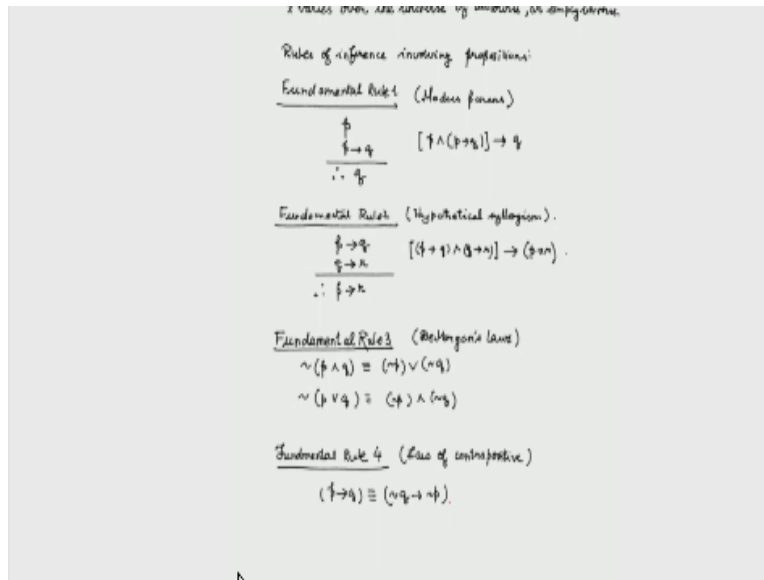 x varies over the universe of discourse, or empty universe.
Rules of inference involving propositions:
Fundamental Rule 1 (Modus ponens)
p
p → q [p ∧ (p → q)] → q
∴ q
Fundamental Rule 2 (Hypothetical syllogism).
p → q [(p → q) ∧ (q → r)] → (p → r).
q → r
∴ p → r
Fundamental Rule 3 (De Morgan's laws)
~(p ∧ q) ≡ (~p) ∨ (~q)
~(p ∨ q) ≡ (~p) ∧ (~q)
Fundmental Rule 4 (Law of contrapositive)
(p → q) ≡ (~q → ~p).